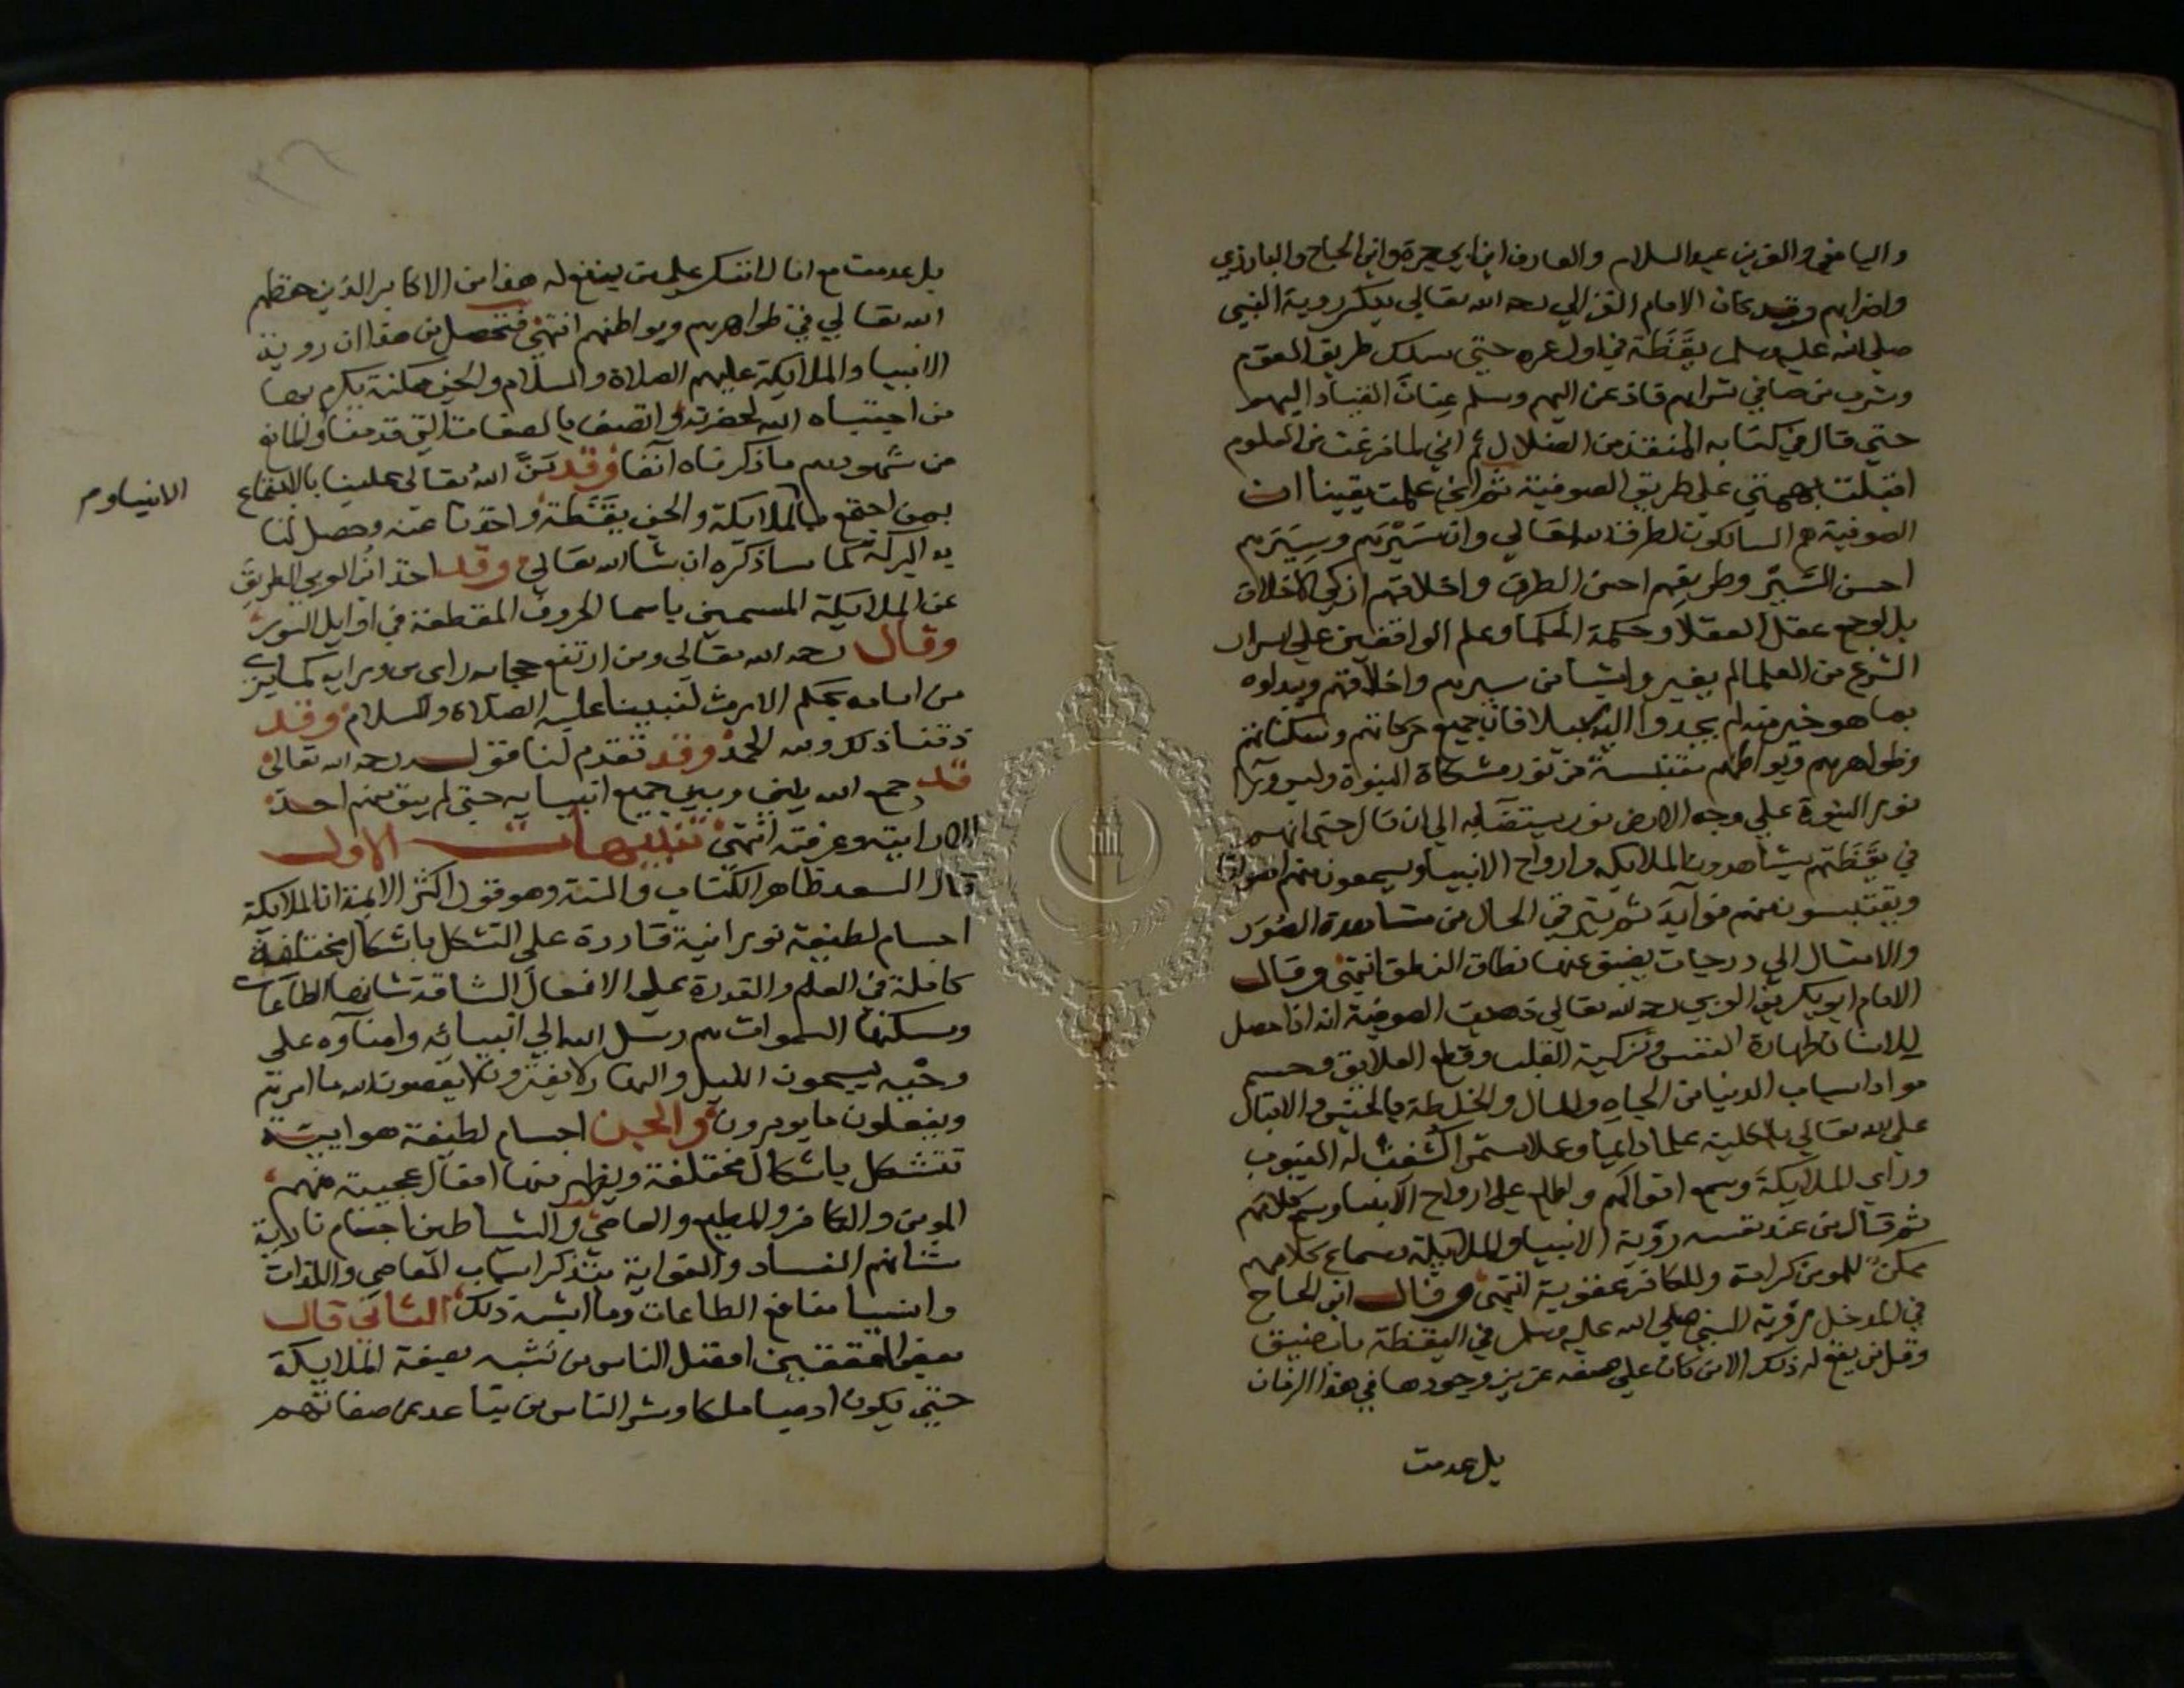 واليافعي والعزبن عبد السلام والعارف ابن ابي جمرة وابن الحاج والبارزي
واضرابهم وقد كان الامام الغزالي رحمه الله تعالي ينكر روية النبي
صلي الله عليه وسلم يقظة في اول عمره حتي سلك طريق القوم
وشرب من صافي شرابهم فاذعن اليهم وسلم عنان القياد اليهم
حتي قال في كتابه المنقذ من الضلال ثم اني لما فرغت من العلوم
اقبلت بهمتي علي طريق الصوفية ثم اني علمت يقينا ان
الصوفية هم السالكون لطرف الله تعالي وان سيرتهم وسيرهم
احسن السير وطريقهم احسن الطرق واخلاقهم ازكي الاخلاق
بل لو جمع عقل العقلا وحكمة الحكما وعلم الواقفين علي اسرار
الشرع من العلما لم يغيروا شيا من سيرهم واخلاقهم ويبدلوه
بما هو خير منه لم يجدوا اليه سبيلا فان جميع حركاتهم وسكناتهم
وظواهرهم وبواطنهم مقتبسة من نور مشكاة النبوة وليس ورا
نور النبوة علي وجه الارض نور يستضا به الي ان قال حتي انهم
في يقظتهم يشاهدون الملايكة وارواح الانبيا ويسمعون منهم اصواتا
ويقتبسون منهم فوايد ثم يترقي الحال من مشاهدة الصور
والامثال الي درجات يضيق عنها نطاق النطق انتهي وقال
الامام ابو بكر بن العربي رحمه الله تعالي ذهبت الصوفية انه اذا حصل
للانسان طهارة النفس وتزكية القلب وقطع العلايق وحسم
مواد اسباب الدنيا من الجاه والمال والخلطة بالجنس والاقبال
علي الله تعالي بالكلية علما دايما وعملا مستمرا كشفت له الغيوب
وراي الملايكة وسمع اقوالهم واطلع علي ارواح الانبيا وسمع كلامهم
ثم قال من عند نفسه روية الانبيا والملايكة وسماع كلامهم
ممكن للمومن كرامة وللكافر عقوبة انتهي وقال ابن الحاج
في المدخل روية النبي صلي الله عليه وسلم في اليقظة باب ضيق
وقل من يقع له ذلك الا من كان علي صفة عزيز وجودها في هذا الزمان
بل عدمت
بل عدمت مع اننا لا ننكر علي من يقع له هذا من الاكابر الذين حفظهم
الله تعالي في ظواهرهم وبواطنهم انتهي فتحصل من هذا ان روية
الانبيا والملايكة عليهم الصلاة والسلام والجن ممكنة يكرم بها
من اجتباه الله لحضرته واتصف بالصفات التي قدمنا والمانع
من شهودهم ما ذكرناه آنفا وقد من الله تعالي علينا بالاجتماع
الانبياوم
بمن اجتمع بالملايكة والجن يقظة واخذنا عنه وحصل لنا
به البركة كما ساذكره ان شا الله تعالي وقد اخذ ابن العربي الطريق
عن الملايكة المسمين باسما الحروف المقطعة في اوايل السور
وقال رحمه الله تعالي ومن ارتفع حجابه راي من ورايه كما يري
من امامه بحكم الارث لنبينا عليه الصلاة والسلام وقد
ذقنا ذلك ولله الحمد وقد تقدم لنا قوله رحمه الله تعالي
قد جمع الله بيني وبين جميع انبيايه حتي لم يبق منهم احد
الا رايته وعرفته انتهي تنبيهات الاول
قال السعد ظاهر الكتاب والسنة وهو قول اكثر الايمة ان الملايكة
اجسام لطيفة نورانية قادرة علي التشكل باشكال مختلفة
كاملة في العلم والقدرة علي الافعال الشاقة شانها الطاعات
ومسكنها السموات هم رسل الله الي انبيائه وامناوه علي
وحيه يسبحون الليل والنهار لا يفترون لا يعصون الله ما امرهم
ويفعلون ما يومرون والجن اجسام لطيفة هوايية
تتشكل باشكال مختلفة ويظهر منها افعال عجيبة منهم
المومن والكافر والمطيع والعاصي والشياطين اجسام نارية
شانهم الفساد والغواية بتذكر اسباب المعاصي واللذات
وانسا منافع الطاعات وما اشبه ذلك الثاني قال
بعض المحققين افضل الناس من تشبه بصفة الملايكة
حتي يكون ادميا ملكا وشر الناس من تباعد عن صفاتهم